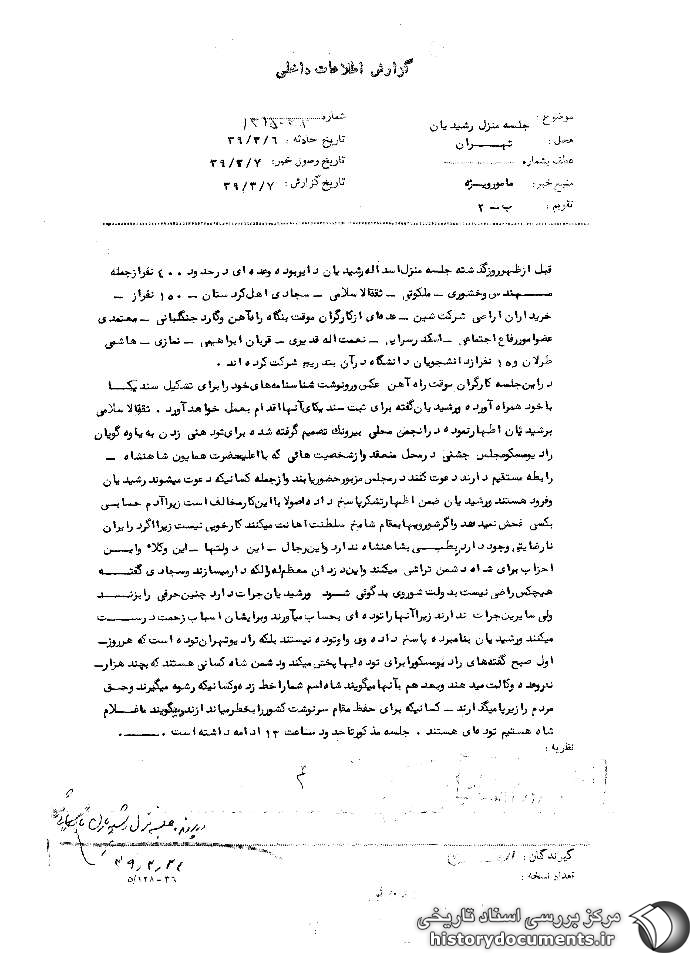 گزارش اطلاعات داخلی
موضوع : جلسه منزل رشیدیان
محل : تهــران
عطف بشماره
منبع خبر : مامورویــژه
تقویم : ب – ۲
شماره
تاریخ حادثه : ۳۹/۳/۶
تاریخ وصول خبر : ۳۹/۳/۷
تاریخ گزارش : ۳۹/۳/۷
قبل ازظهرروزگذشته جلسه منزل اسداله رشیدیان دایربوده وعده ای درحدود ۴۰۰ نفرازجمله
مهندس وخشوری – ملکوتی – ثقةالاسلامی – سجادی اهل کردستان – ۱۵۰ نفراز –
خریداران اراضی شرکت شین – عده‌ای ازکارگران موقت بنگاه راه‌آهن وگارد جنگلبانی – معتمدی
عضوامورفاع اجتماعی – اسکندرسرابی – نعمت اله قدیری – قربان ابراهیمی – نمازی – هاشمی
طرلان و۱۵ نفرازدانشجویان دانشگاه درآن بتدریج شرکت کرده اند .
دراین جلسه کارگران موقت راه آهن عکس ورونوشت شناسنامه‌های خودرا برای تشکیل سندیکا
باخود همراه آورده ورشیدیان گفته برای ثبت سندیکای آنها اقدام بعمل خواهدآورد . ثقةالاسلامی
برشیدیان اظهارنموده درانجمن محلی بیرونک تصمیم گرفته شده برای تودهنی زدن به یاوه گویان
رادیومسکومجلس جشنی درمحل منعقد وازشخصیت هائی که بااعلیحضرت همایون شاهنشاه –
رابطه مستقیم دارند دعوت کنند درمجلس مزبورحضوریابند وازجمله کسانیکه دعوت میشوند رشیدیان
وفرود هستند ورشیدیان ضمن اظهارتشکرپاسخ داده اصولا بااین کارمخالف است زیراآدم حسابی
بکسی فحش نمیدهد واگرشورویهابمقام شامخ سلطنت اهانت میکنند کارخوبی نیست زیرااگردرایران
نارضایتی وجود داردربطــی بشاهنشاه ندارد واین رجال – این دولتها – این وکلاء وایــن
احزاب برای شاه دشمن تراشی میکنند واین دزدان معظم له راآلکه دارمیسازند وسجادی گفتــه
هیچکس راضی نیست بدولت شوروی بدگوئی شود ورشیدیان جرات دارد چنین حرفی را بزنــد
ولی سایرین جرات ندارند زیراآنهاراتوده ای بحساب میآورند وبرایشان اسباب زحمت درســت
میکنند ورشیدیان بنامبرده پاسخ داده وی واوتوده نیستند بلکه رادیوتهران توده است که هرروز–
اول صبح گفته‌های رادیومسکورابرای توده ایهاپخش میکند ودشمن شاه کسانی هستند که بچند هزار–
نفروعده وکالت میدهند وبعد هم بآنهامیگویند شاه اسم شماراخط زده وکسانیکه رشوه میگیرند وحق
مردم رازیرپامیگذارند – کسانیکه برای حفظ مقام سرنوشت کشوررابخطرمیاندازندومیگویند ماغــلام
شاه هستیم توده‌ای هستند . جلسه مذکورتاحدود ساعت ۱۳ ادامه داشته است .
نظریه :
گیرندگان :
تعداد نسخه :
۳۹/۳/۲۴
۵/۱۲۸-۳۶
مرکز بررسی اسناد تاریخی
historydocuments.ir